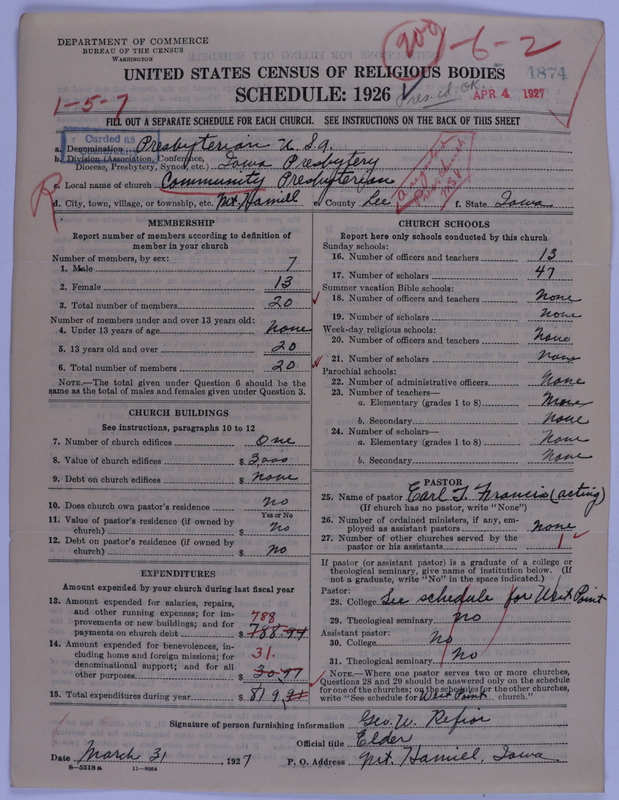 DEPARTMENT OF COMMERCE
BUREAU OF THE CENSUS
WASHINGTON
200 -6-2
UNITED STATES CENSUS OF RELIGIOUS BODIES
1874
SCHEDULE: 1926
Pres. is. OK.
APR 4 1927
1-5-7
FILL OUT A SEPARATE SCHEDULE FOR EACH CHURCH. SEE INSTRUCTIONS ON THE BACK OF THIS SHEET
Carded as
a. Denomination Presbyterian U.S.A.
b. Division (Association, Conference, Diocese, Presbytery, Synod, etc.) Iowa Presbytery
c. Local name of church Community Presbyterian
d. City, town, village, or township, etc. Mt. Hamill e. County Lee f. State Iowa
R
MEMBERSHIP
Report number of members according to definition of
member in your church
Number of members, by sex:
1. Male 7
2. Female 13
3. Total number of members 20
Number of members under and over 13 years old:
4. Under 13 years of age None
5. 13 years old and over 20
6. Total number of members 20
NOTE.—The total given under Question 6 should be the
same as the total of males and females given under Question 3.
CHURCH BUILDINGS
See instructions, paragraphs 10 to 12
7. Number of church edifices One
8. Value of church edifices $ 3,000
9. Debt on church edifices $ None
10. Does church own pastor's residence No
Yes or No
11. Value of pastor's residence (if owned by
church) $ No
12. Debt on pastor's residence (if owned by
church) $ No
EXPENDITURES
Amount expended by your church during last fiscal year
13. Amount expended for salaries, repairs,
and other running expenses; for im-
provements or new buildings; and for 788
payments on church debt $ 788.94
14. Amount expended for benevolences, in-
cluding home and foreign missions; for 31.
denominational support; and for all
other purposes $ 30.97
15. Total expenditures during year $ 819.91
CHURCH SCHOOLS
Report here only schools conducted by this church
Sunday schools:
16. Number of officers and teachers 13
17. Number of scholars 47
Summer vacation Bible schools:
18. Number of officers and teachers None
19. Number of scholars None
Week-day religious schools:
20. Number of officers and teachers None
21. Number of scholars None
Parochial schools:
22. Number of administrative officers None
23. Number of teachers—
a. Elementary (grades 1 to 8) None
b. Secondary None
24. Number of scholars—
a. Elementary (grades 1 to 8) None
b. Secondary None
PASTOR
25. Name of pastor Earl T. Francis (acting)
(If church has no pastor, write "None")
26. Number of ordained ministers, if any, em-
ployed as assistant pastors None
27. Number of other churches served by the
pastor or his assistants 1
If pastor (or assistant pastor) is a graduate of a college or
theological seminary, give name of institution below. (If
not a graduate, write "No" in the space indicated.)
Pastor:
28. College See schedule for West Point
29. Theological seminary No
Assistant pastor:
30. College No
31. Theological seminary No
NOTE.—Where one pastor serves two or more churches,
Questions 28 and 29 should be answered only on the schedule
for one of the churches; on the schedules for the other churches,
write "See schedule for West Point church."
Signature of person furnishing information Geo. W. Refior
Official title Elder
Date March 31, 1927 P. O. Address Mt. Hamill, Iowa
8—5518 a 11—9064